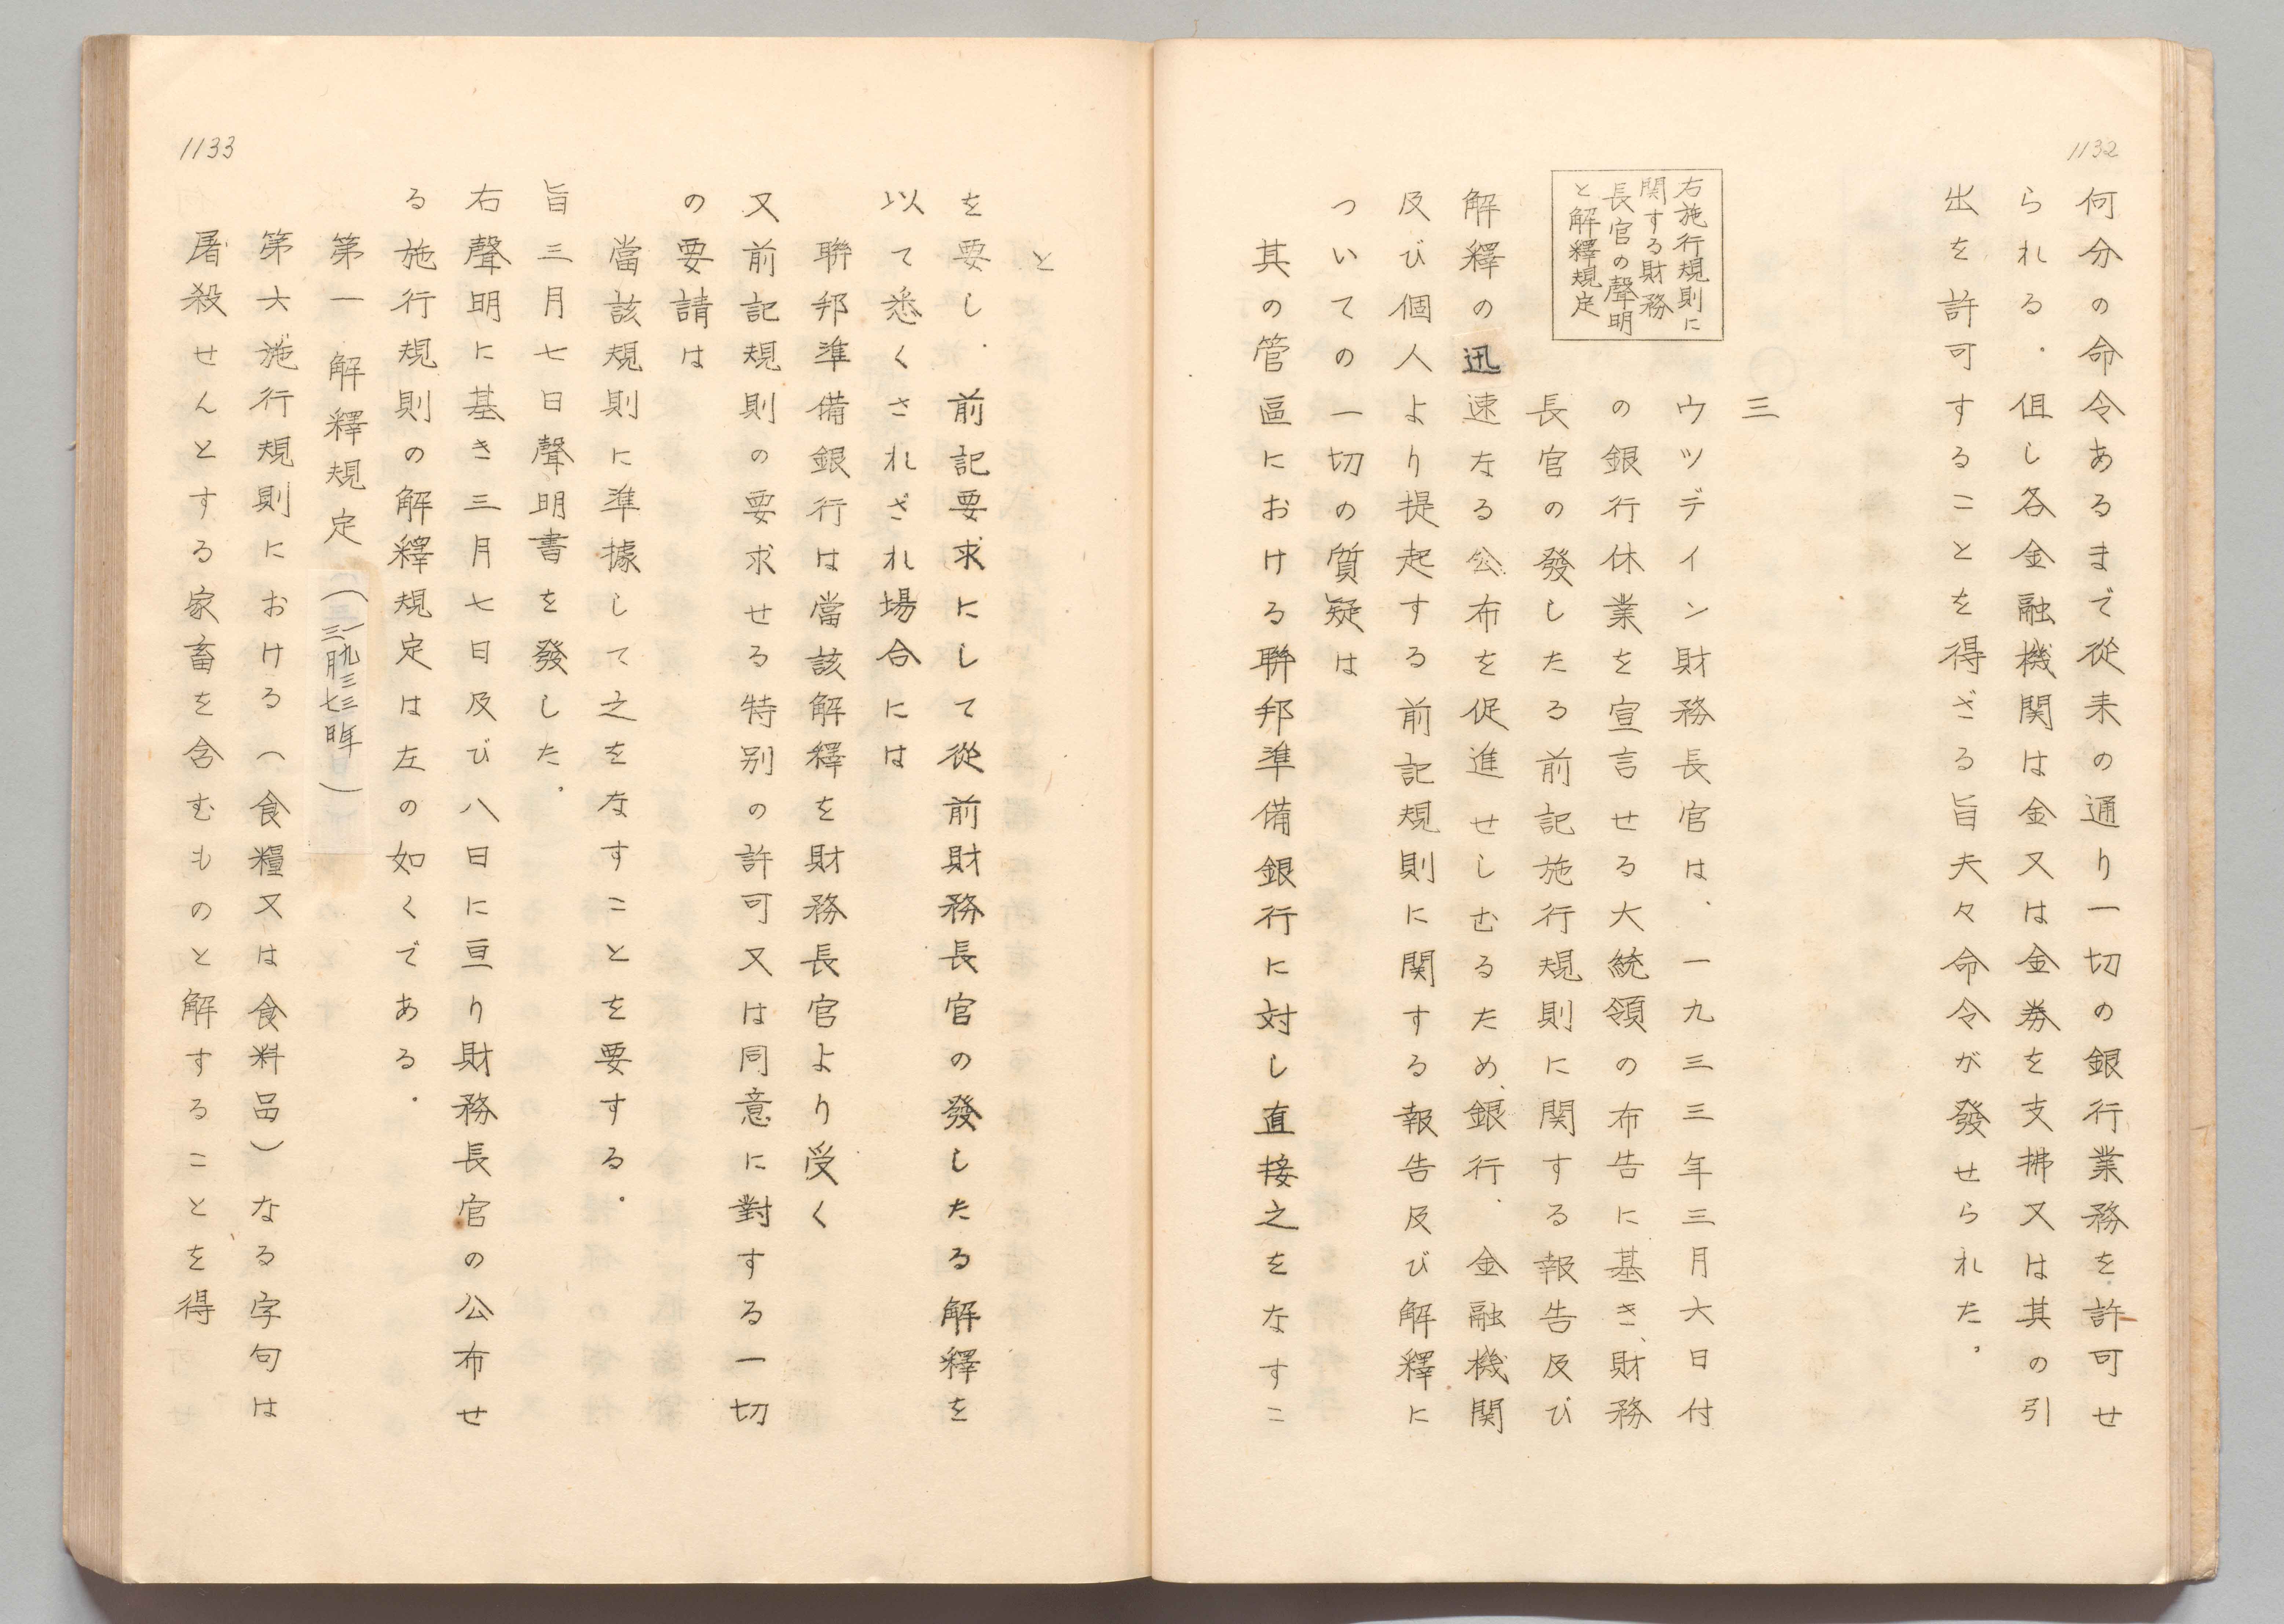 1132
何分の命令あるまで從来の通り一切の銀行業務を許可せ
られる．伹し各金融機関は金又は金券を支拂又は其の引
出を許可することを得ざる旨夫々命令が發せられた。
三
右施行規則に
関する財務
長官の聲明
と解釋規定
ウッディン財務長官は、一九三三年三月六日付
の銀行休業を宣言せる大統領の布告に基き、財務
長官の發したる前記施行規則に関する報告及び
解釋の迅速なる公布を促進せしむるため、銀行．金融機関
及び個人より提起する前記規則に関する報告及び解釋に
ついての一切の質疑は
其の管區における聯邦準備銀行に対し直接之をなすこ
と
を要し．前記要求にして從前財務長官の發したる解釋を
以て悉くされざれ場合には
聯邦準備銀行は當該解釋を財務長官より受く
又前記規則の要求せる特別の許可又は同意に對する一切
の要請は
當該規則に準據して之をなすことを要する．
旨三月七日聲明書を發した。
右聲明に基き三月七日及び八日に亘り財務長官の公布せ
る施行規則の解釋規定は左の如くである．
第一 解釋規定（一九三三年三月七日）
第六施行規則における（食糧又は食料品）なる字句は
屠殺せんとする家畜を含むものと解することを得
1133